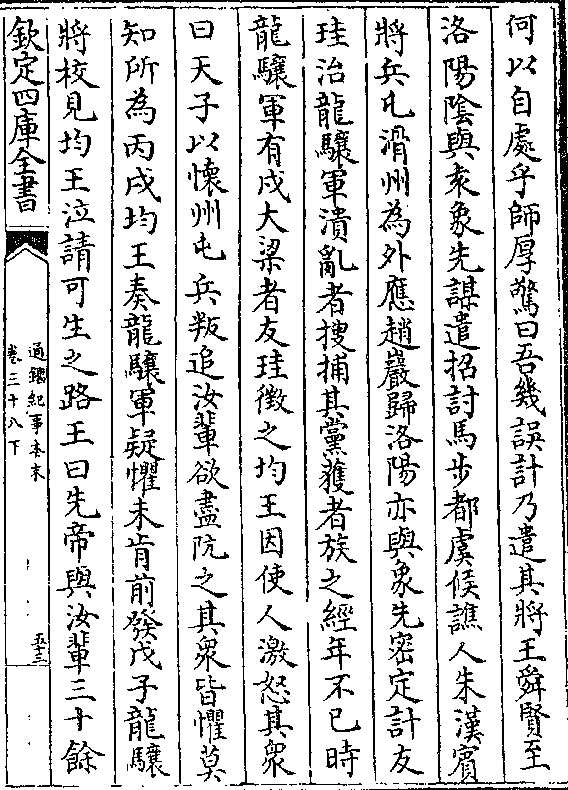 何以自處乎師厚驚曰吾幾誤計乃遣其將王舜賢至
洛陽陰與袁象先謀遣招討馬步都虞候譙人朱漢賓
將兵屯滑州為外應趙巖歸洛陽亦與象先密定計友
珪治龍驤軍潰亂者搜捕其黨獲者族之經年不已時
龍驤軍有戍大梁者友珪徵之均王因使人激怒其衆
曰天子以懷州屯兵叛追汝輩欲盡阬之其衆皆懼莫
知所為丙戌均王奏龍驤軍疑懼未肯前發戊子龍驤
將校見均王泣請可生之路王曰先帝與汝輩三十餘
欽定四庫全書
通鑑紀事本末
卷三十八下
五十三